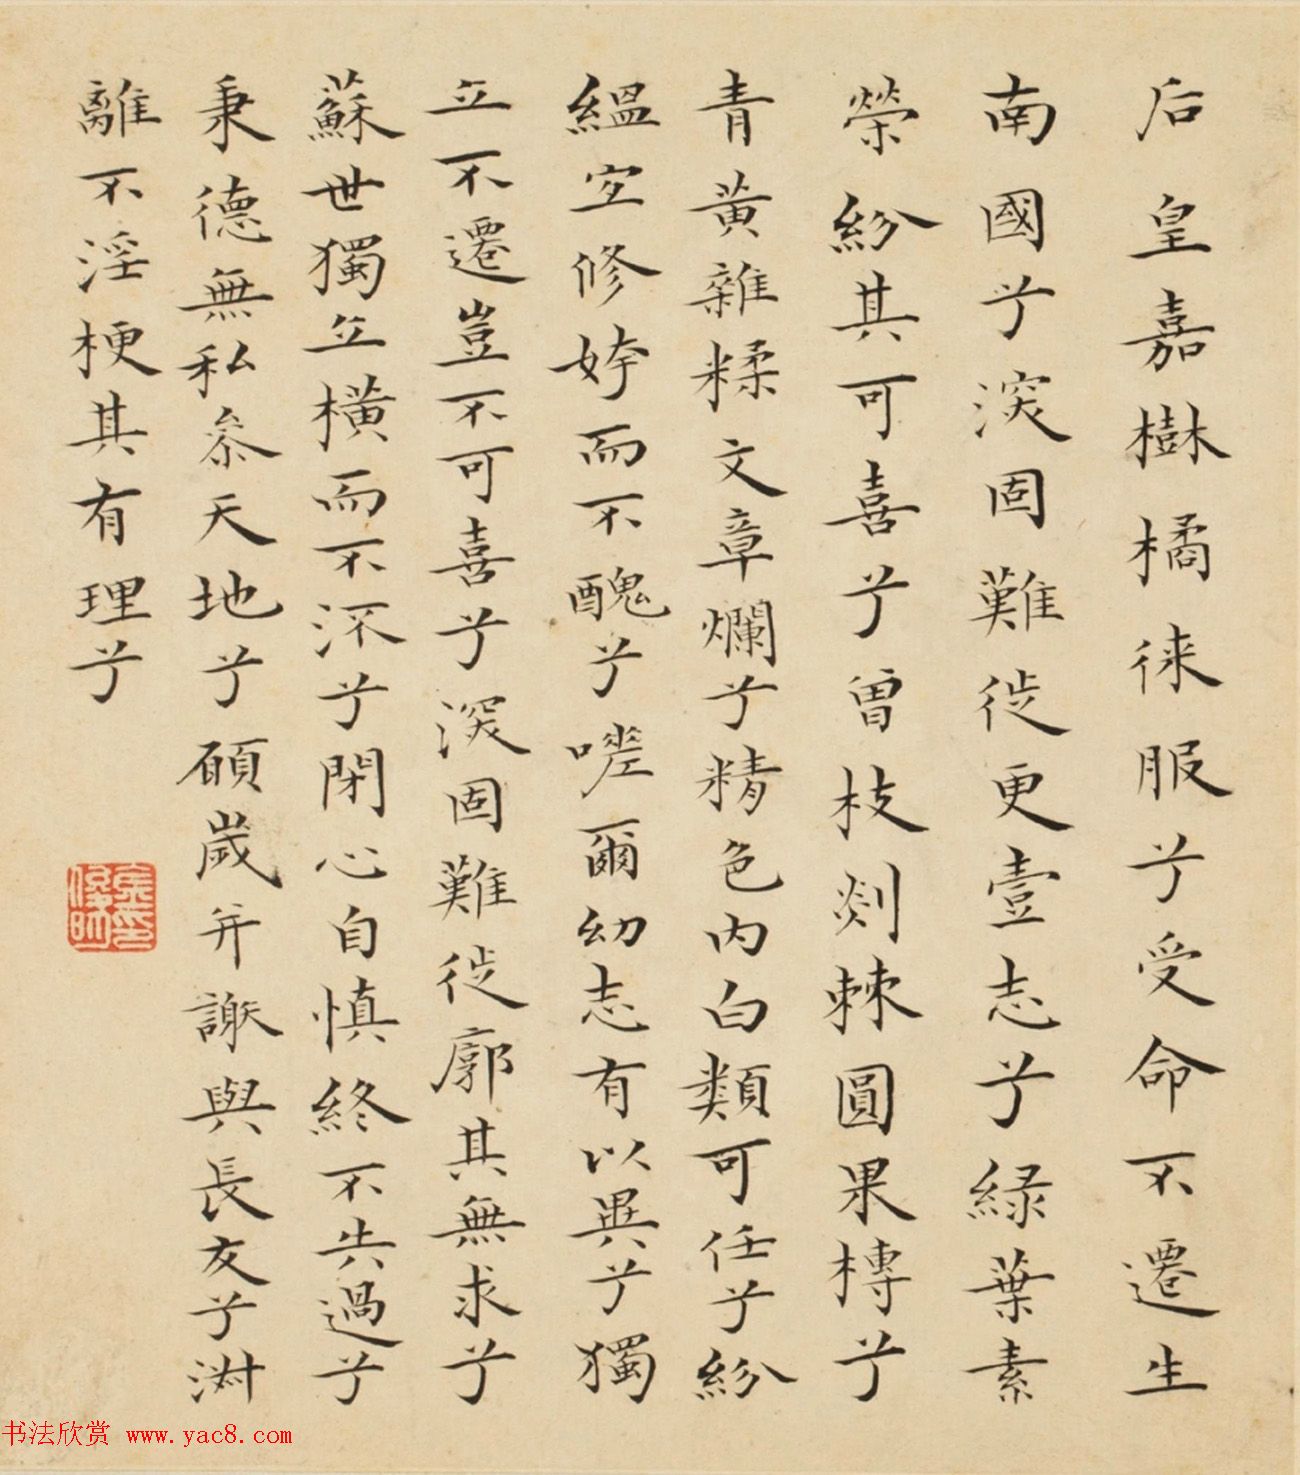 后皇嘉樹橘徠服兮受命不遷生
南國兮深固難徙更壹志兮緑葉素
榮紛其可喜兮曾枝剡棘圓果槫兮
青黃雜糅文章爛兮精色内白類可任兮紛
緼宜修姱而不醜兮嗟爾幼志有以異兮獨
立不遷豈不可喜兮深固難徙廓其無求兮
蘇世獨立橫而不流兮閉心自慎終不失過兮
秉德無私參天地兮願歲并謝與長友兮淑
離不淫梗其有理兮
书法欣赏 www.yac8.com